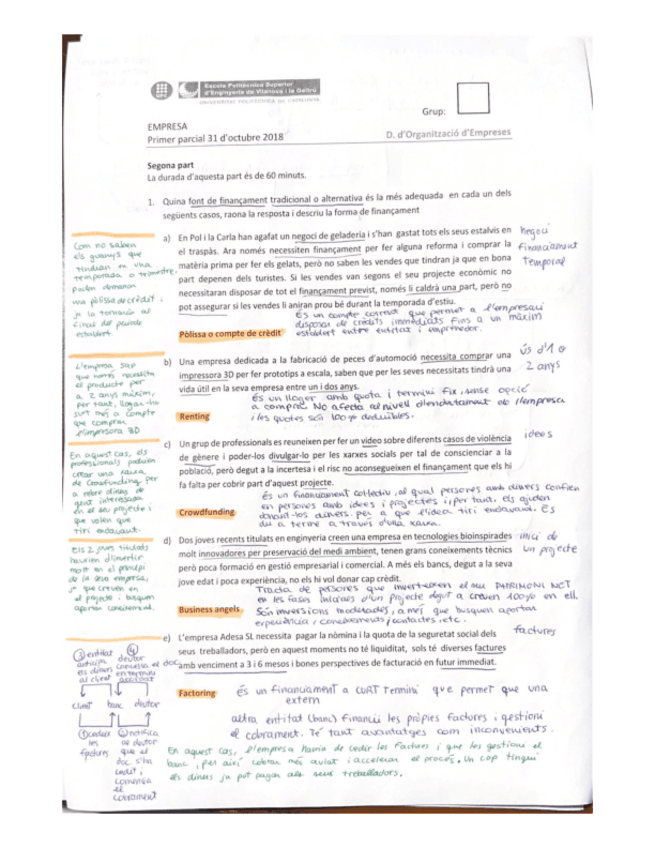 Escola Politècnica Superior
d'Enginyeria de Vilanova i la Geltrú
UNIVERSITAT POLITÈCNICA DE CATALUNYA
Grup:
EMPRESA
Primer parcial 31 d'octubre 2018
D. d'Organització d'Empreses
Segona part
La durada d'aquesta part és de 60 minuts.
1. Quina font de finançament tradicional o alternativa és la més adequada en cada un dels
següents casos, raona la resposta i descriu la forma de finançament
Com no saben
els guanys que
tindran en una
temporada o trimestre,
poden demanar
una pòlissa de crèdit i
ja la tornaran al
final del període
establert.
a) En Pol i la Carla han agafat un negoci de geladeria i s'han gastat tots els seus estalvis en
el traspàs. Ara només necessiten finançament per fer alguna reforma i comprar la
matèria prima per fer els gelats, però no saben les vendes que tindran ja que en bona
part depenen dels turistes. Si les vendes van segons el seu projecte econòmic no
necessitaran disposar de tot el finançament previst, només li caldrà una part, però no
pot assegurar si les vendes li aniran prou bé durant la temporada d'estiu.
negoci
finançament
Temporal
És un compte corrent que permet a l'empresari
disposar de crèdits immediats fins a un màxim
establert entre entitat i emprenedor.
Pòlissa o compte de crèdit
L'empresa sap
que només necessita
el producte per
a 2 anys màxim,
per tant, llogar-ho
surt més a compte
que comprar
l'impressora 3D
b) Una empresa dedicada a la fabricació de peces d'automoció necessita comprar una
impressora 3D per fer prototips a escala, saben que per les seves necessitats tindrà una
vida útil en la seva empresa entre un i dos anys.
ús d'1 o
2 anys
És un lloguer amb quota i termini fix, sense opció
a compra. No afecta al nivell d'endeutament de l'empresa
i les quotes són 100% deduibles.
Renting
En aquest cas, els
professionals podrien
crear una xarxa
de Crowdfunding per
a rebre diners de
gent interessada
en el seu projecte i
que volen que
tiri endavant.
c) Un grup de professionals es reuneixen per fer un video sobre diferents casos de violència
de gènere i poder-los divulgar-lo per les xarxes socials per tal de conscienciar a la
població, però degut a la incertesa i el risc no aconsegueixen el finançament que els hi
fa falta per cobrir part d'aquest projecte.
idees
És un finançament col·lectiu, al qual persones amb diners confien
en persones amb idees i projectes i, per tant, els ajuden
donant-los diners per a que l'idea tiri endavant. És
du a terme a través d'una xarxa.
Crowdfunding
Els 2 joves titulats
haurien d'invertir
molt en el principi
de la seva empresa,
ja que creven en
el projecte i busquen
aportar coneixement.
d) Dos joves recents titulats en enginyeria creen una empresa en tecnologies bioinspirades
molt innovadores per preservació del medi ambient, tenen grans coneixements tècnics
però poca formació en gestió empresarial i comercial. A més els bancs, degut a la seva
jove edat i poca experiència, no els hi vol donar cap crèdit.
inici de
un projecte
Tracta de persones que inverteixen el seu PATRIMONI NET
en les fases inicials d'un projecte degut a creven 100% en ell.
Són inversions moderades, a més que busquen aportar
experiència / coneixements / contactes, etc.
Business angels
e) L'empresa Adesa SL necessita pagar la nòmina i la quota de la seguretat social dels
seus treballadors, però en aquest moments no té liquiditat, sols té diverses factures
amb venciment a 3 i 6 mesos i bones perspectives de facturació en futur immediat.
factures
③ entitat
anticipa
els diners
al client
④
deutor
cancel·la el doc
en termini
acordat
client banc deutor
① cedeix
les
factures
② notifica
al deutor
que el
doc. s'ha
cedit i
comença
el
cobrament
Factoring
És un financiament a CURT Termini que permet que una
extern
altra entitat (banc) financiï les pròpies factures i gestioni
el cobrament. Té tant avantatges com inconvenients.
En aquest cas, l'empresa hauria de cedir les factures i que les gestioni el
banc, per així cobrar més aviat i accelerar el procés. Un cop tingui
els diners ja pot pagar als seus treballadors.